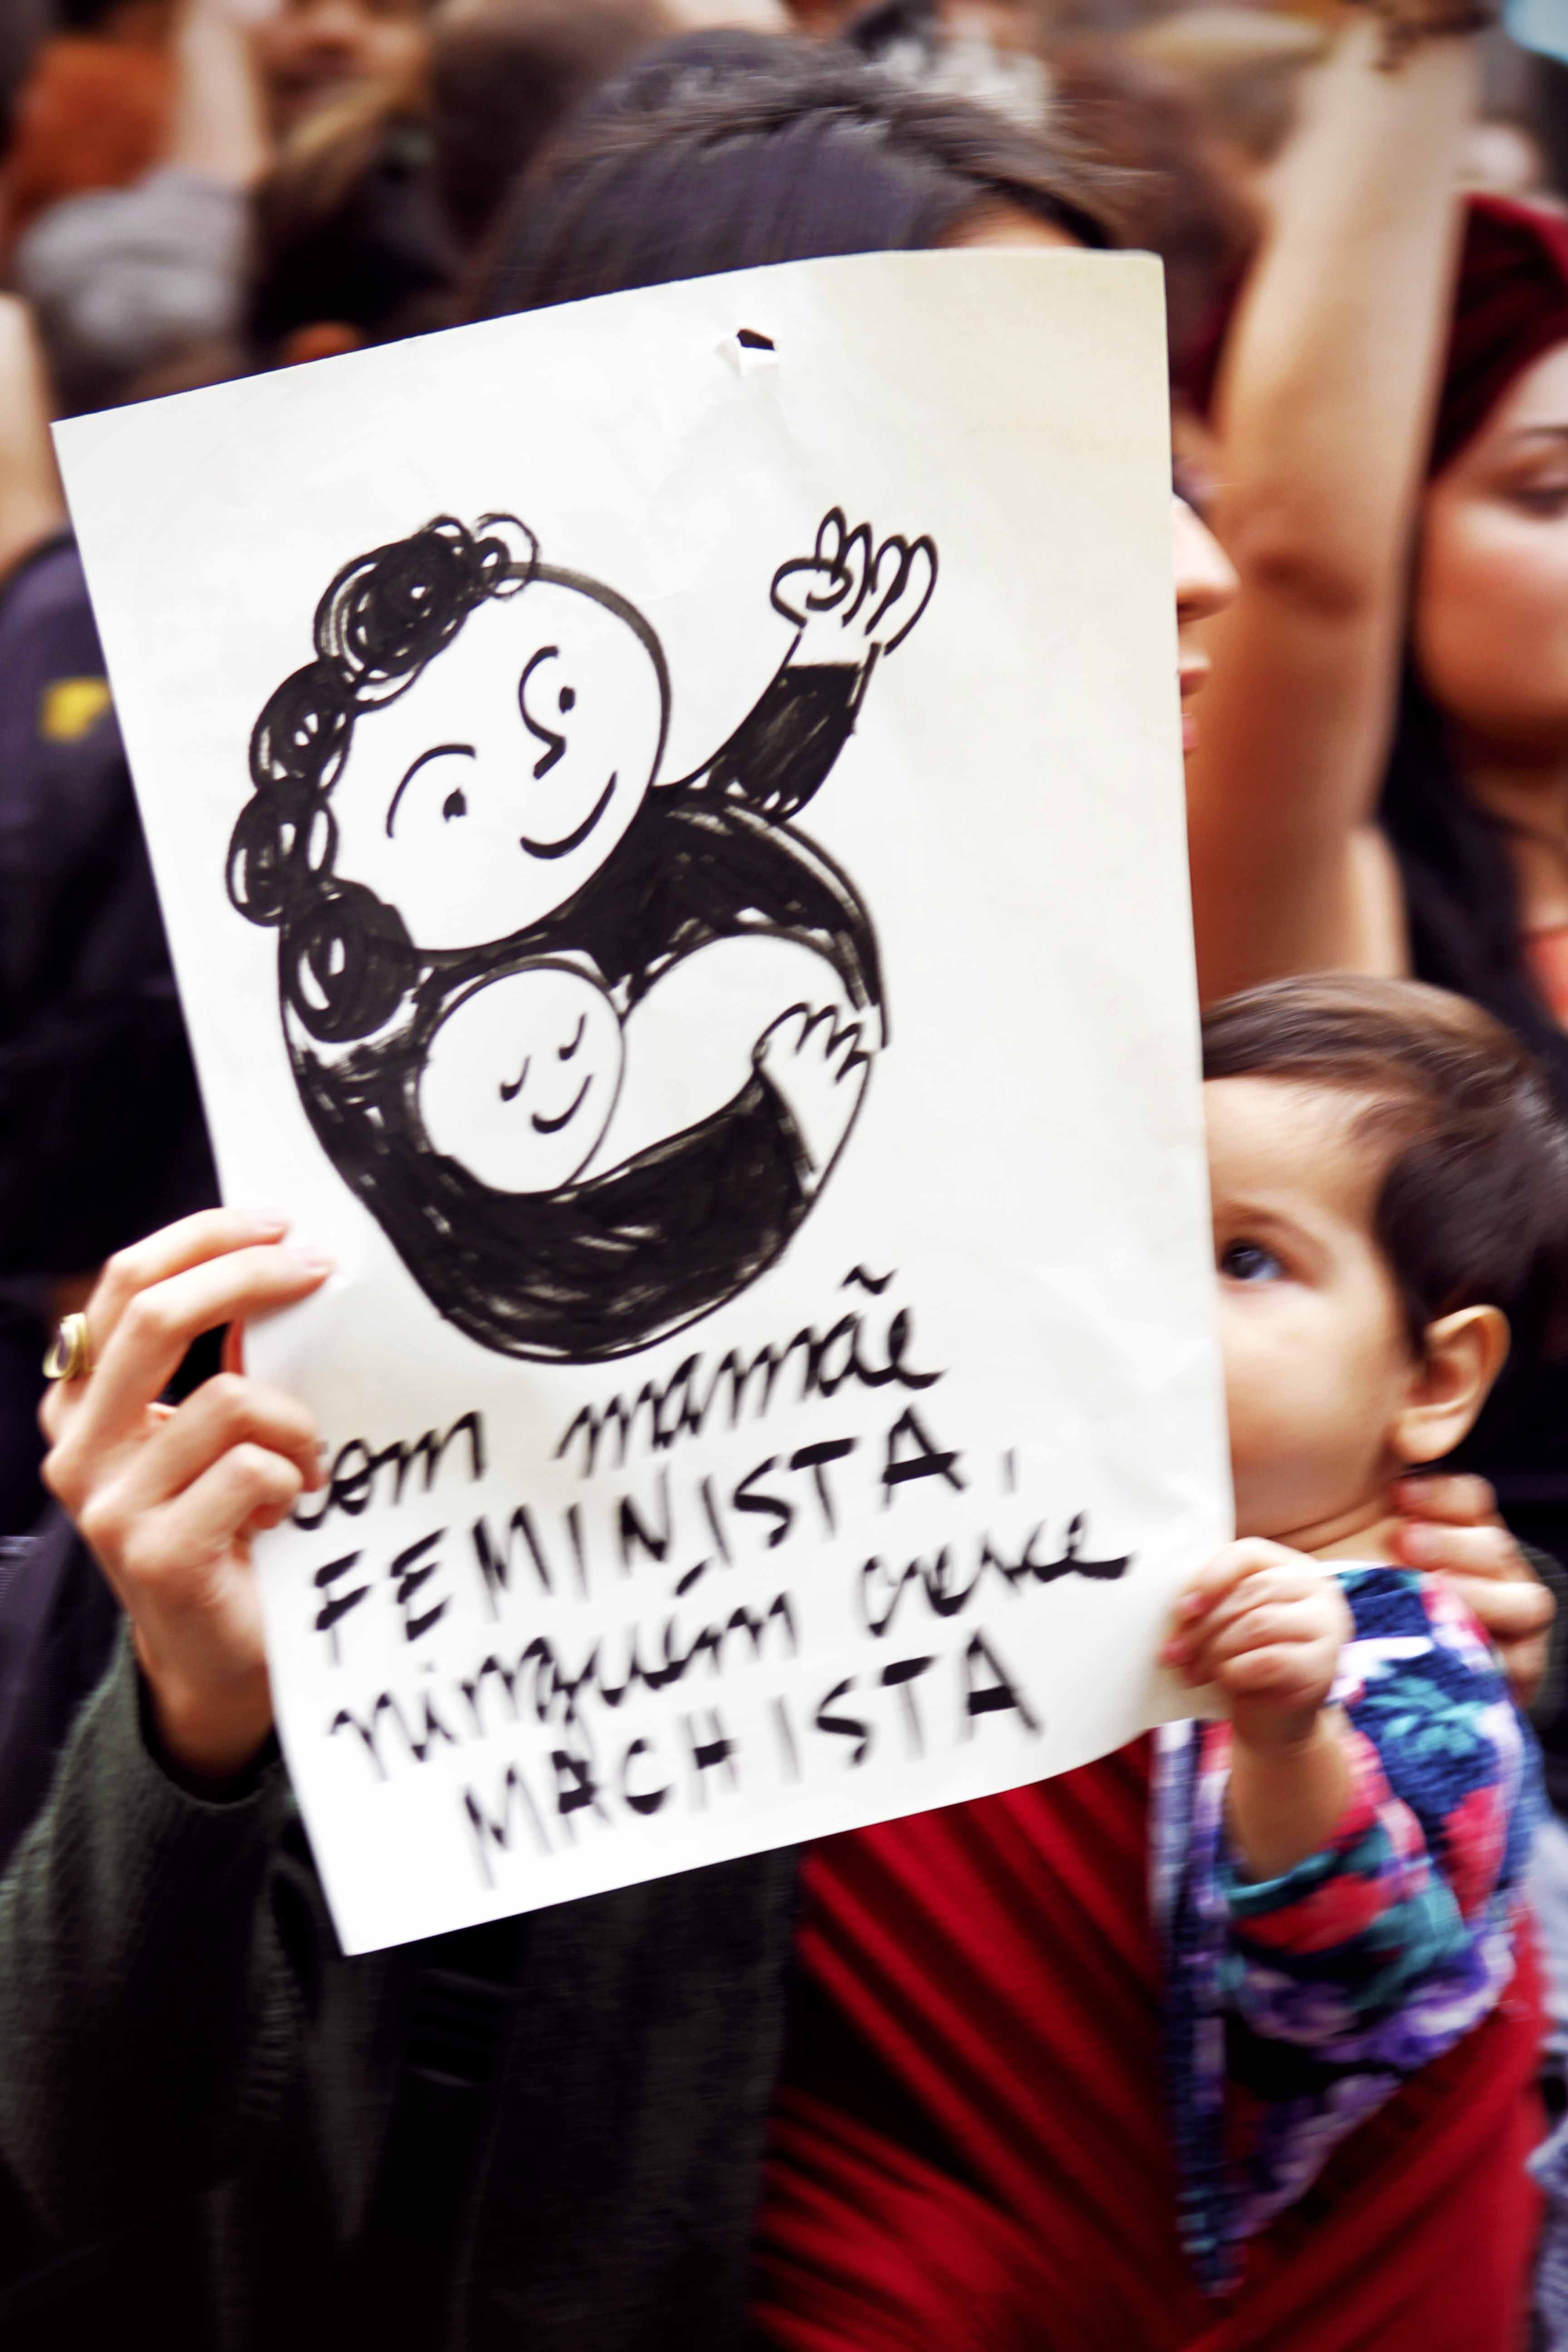 com mamãe
FEMINISTA,
ninguém cresce
MACHISTA